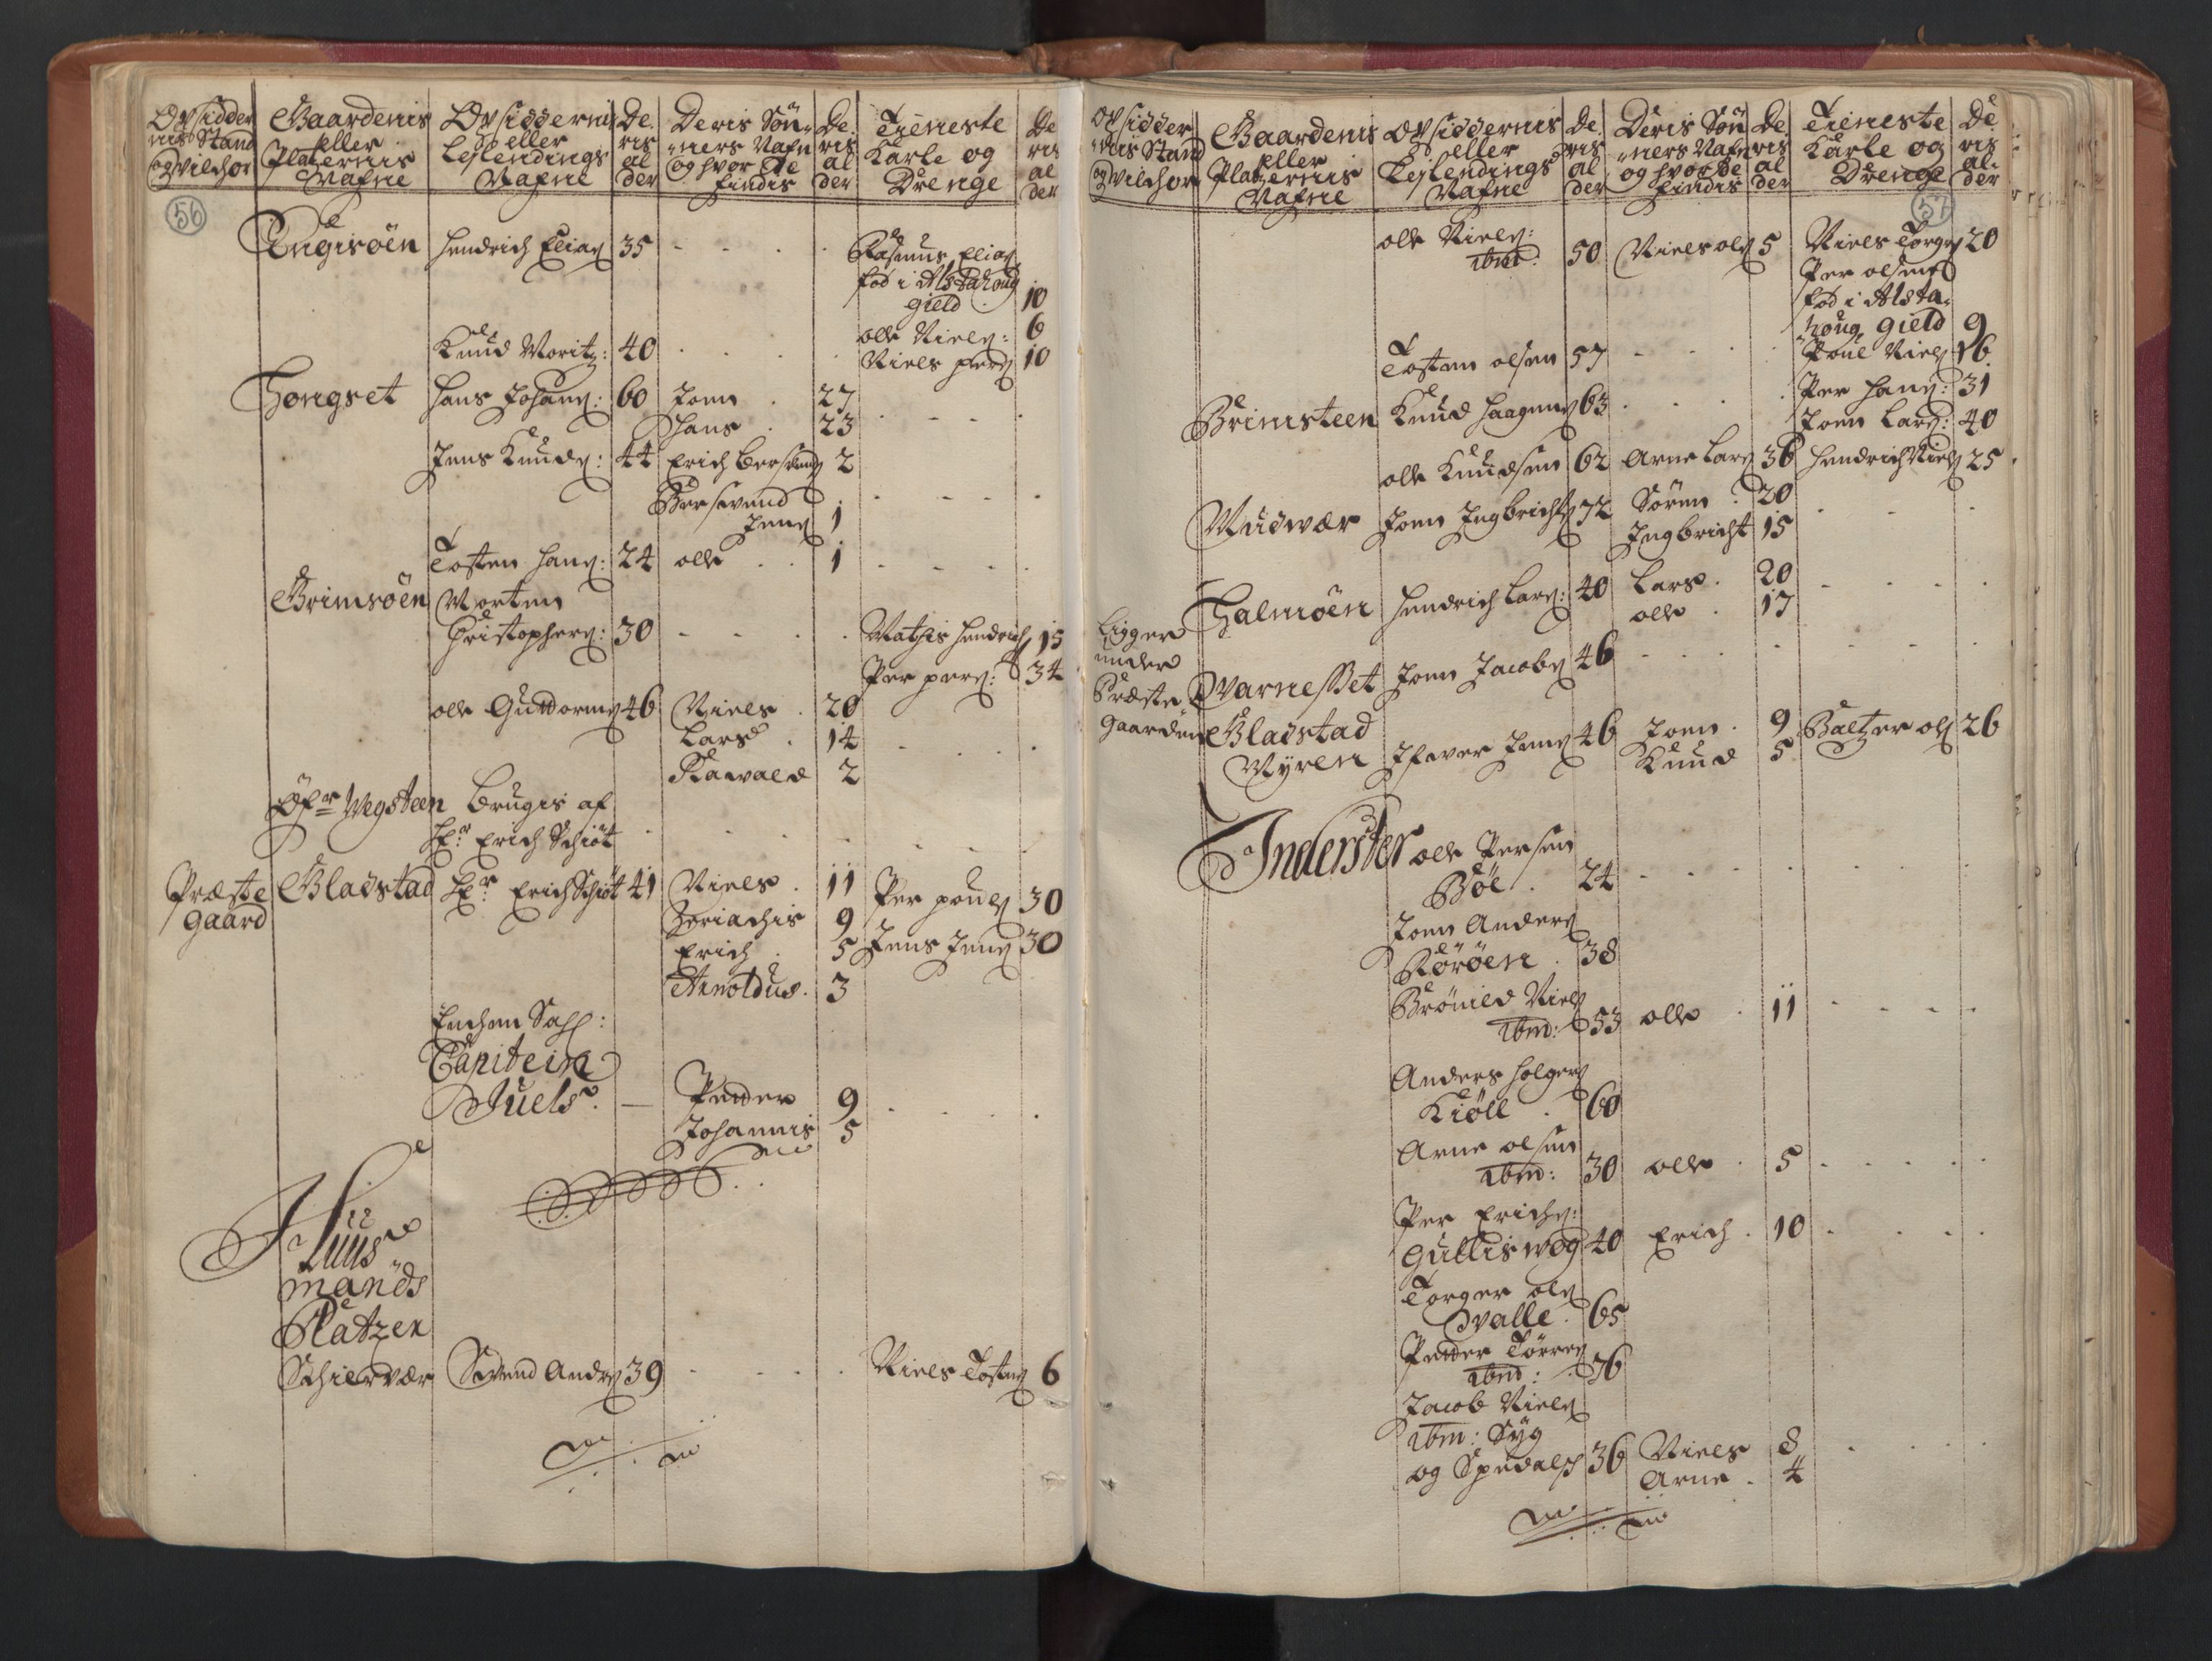 Opsidder
nis Stand
og Vilchor
Gaardenis
eller
Platzernis
Nafne
Opsiddernis
eller
Leylendings
Nafne
De
ris
al
der
Deris Søn-
ners Nafn
og hvor de
findis
De
ris
al
der
Tieneste
Karle og
Drenge
De
ris
al
der
56
Engisöen Hendrich Elias 35 - - - Rasmus Elias
fød i Alstahoug
gield 10
Knud Moritz: 40 olle Niels: 6
Niels pers 10
Hongset Hans Johans: 60 Joen 27
Hans 23
Jens Knuds: 44 Erich 2
Jens 1
Tosten Hans: 24 olle 1
Grimsöen Morten
Christophers: 30 - - - Mathis Hendrich 15
Per pers: 34
olle Guttorms 46 Niels 20
Lars 14
Rawald 2
Öfr Wegsteen brugis af
Hr: Erich Schiöt
Præste Gladstad Hr: Erich Schiöt 41 Niels 11 Per pouls 30
gaard
Zeriachis 9
Erich 5 Jens Jens 30
Arnoldus 3
Enchen Sahl:
Capitein
Juels. — Petter 9
Johannis 5
Huus
mands
Platzer
Schiervær Svend Anders 39 - - - Niels Tostens 6
Opsidder
nis Stand
og Vilchor
Gaardenis
eller
Platzernis
Nafne
Opsiddernis
eller
Leylendings
Nafne
De
ris
al
der
Deris Søn
ners Nafn
og hvor de
findis
De
ris
al
der
Tieneste
Karle og
Drenge
De
ris
al
der
57
olle Niels:
ibm: 50 Niels ols 5 Niels Torgers 20
Per olsen
fød i Alsta-
houg gield 9
Tosten olsen 57 - - - Poul Niels 16
Brimsteen Knud Haagens 63 Per Hans: 31
Joen Lars: 40
olle Knudsen 62 Arne Lars 36 Hendrich Niels 25
Mudwær Joen Ingbrichts 72 Sören 20
Ingbricht 15
Halmöen Hendrich Lars: 40 Lars 20
olle 17
Ligger
under
Præste
gaarden
Warnesset Joen Jacobs 46
Gladstad
Myren Ifwer Jens 46 Joen 9 Baltzer ols 26
Knud 5
Inderster olle Persen
Böe 24
Joen Anders
Röröen 38
Brönild Niels
ibm: 53 olle 11
Anders Holgers
Kiöll 60
Arne olsen
ibm: 30 olle 5
Per Erichs:
Gullisweg 40 Erich 10
Torger ols
Walle 65
Petter Törres
ibm: 76
Jacob Niels
ibm: Syg
og Spedalsch 36 Niels 8
Arne 4